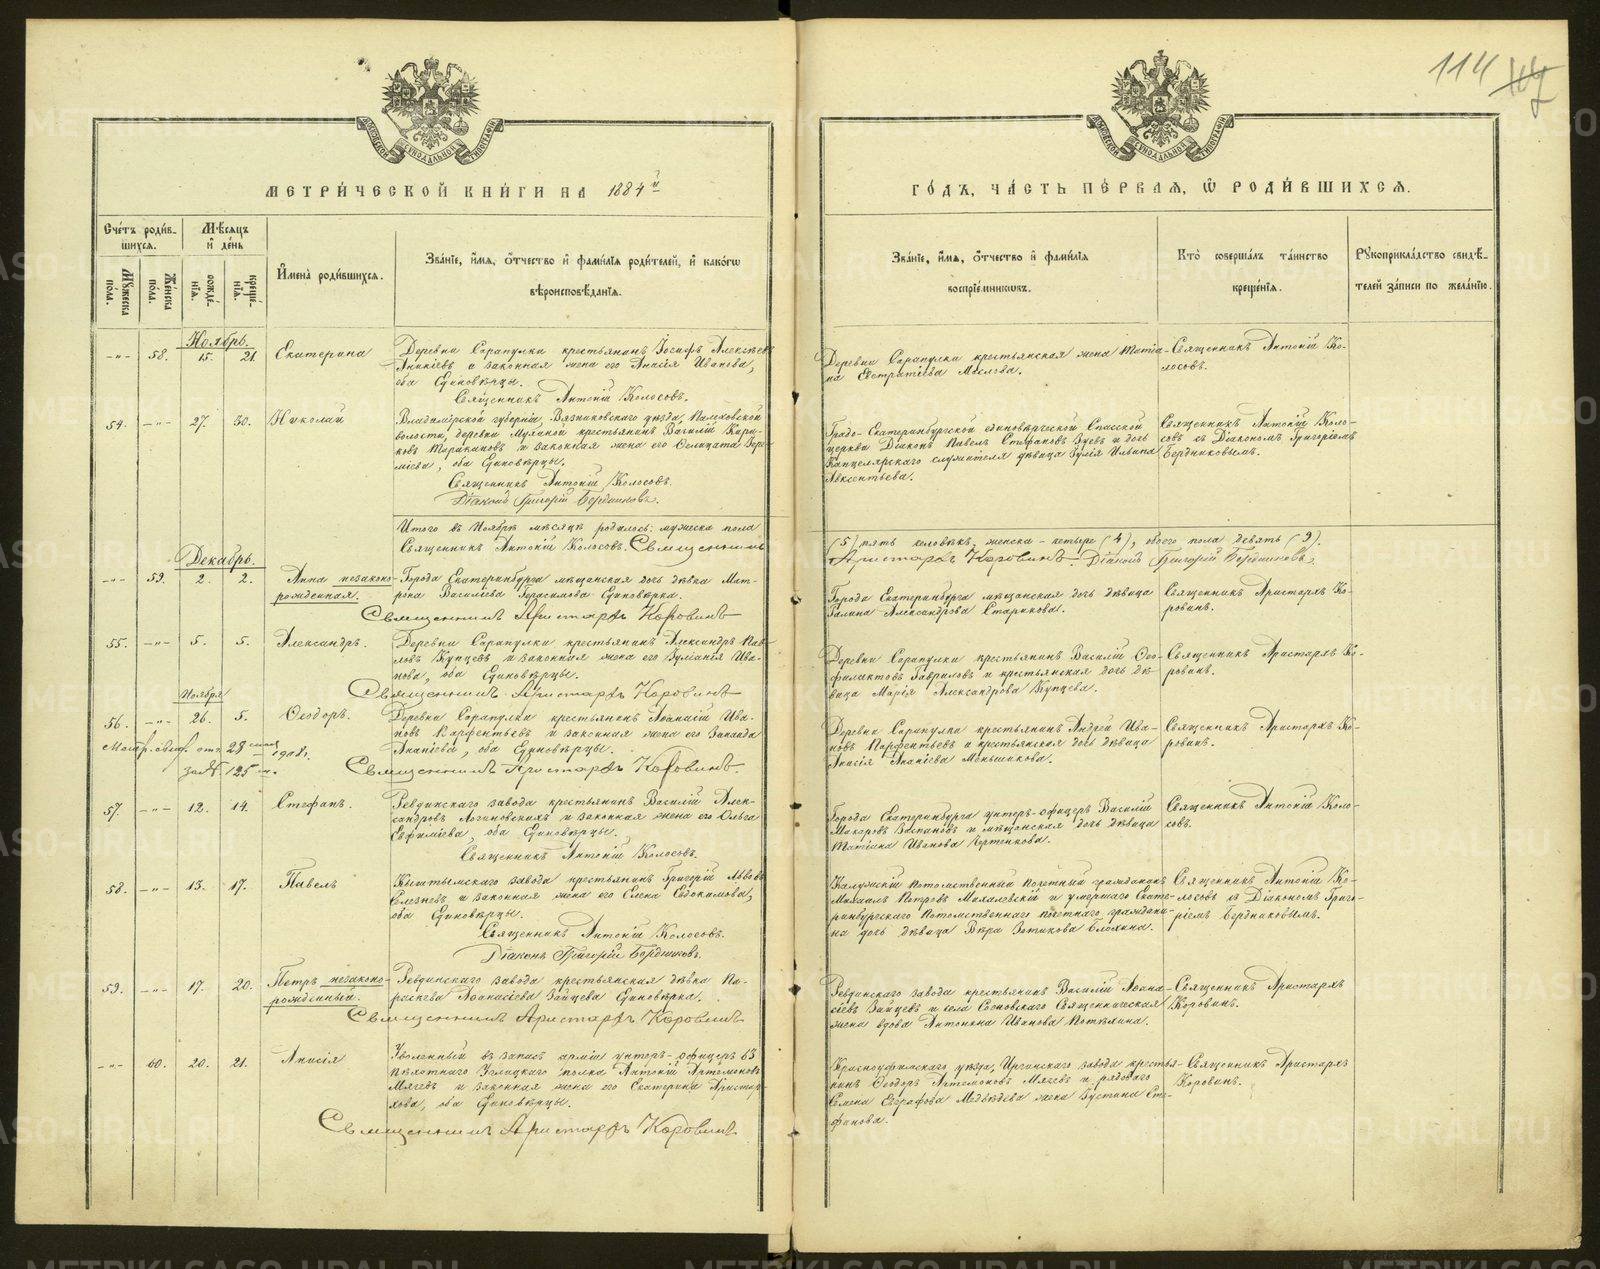 114
МЕТРИЧЕСКОЙ КНИГИ НА 1884 й
ГОДЪ, ЧАСТЬ ПЕРВАЯ, Ѡ РОДИВШИХСЯ.
Счетъ родившихся.
Мужеска пола.
Женска пола.
Мѣсяцъ и день
рожденія.
крещенія.
Имена родившихся.
Званіе, имя, отчество и фамилія родителей, и какогѡ
вѣроисповѣданія.
Званіе, имя, отчество и фамилія
воспріемниковъ.
Кто совершалъ таинство
крещенія.
Рукоприкладство свидѣ-
телей записи по желанію.
Ноябрь.
-"- 58. 15. 21. Екатерина
Деревни Сарапулки крестьянинъ Іосифъ Алексѣевъ
Аникіевъ и законная жена его Анисія Иванова,
оба Единовѣрцы.
Священникъ Антоній Колосовъ.
Деревни Сарапулки крестьянская жена Матіа-
на Евстратіева
Священникъ Антоній Ко-
лосовъ.
54. -"- 27. 30. Николай
Владимірской губерніи, Вязниковскаго уѣзда,
волости, деревни Мухиной крестьянинъ Василій
Таракановъ и законная жена его
оба Единовѣрцы.
Священникъ Антоній Колосовъ.
Діаконъ Григорій Бердниковъ.
Градо-Екатеринбургской единовѣрческой Спасской
церкви Діаконъ Павелъ Стефановъ Зуевъ и дочь
Канцелярскаго служителя дѣвица Юлія Ильина
Авксентьева.
Священникъ Антоній Коло-
совъ съ Діакономъ Григоріемъ
Бердниковымъ.
Итого въ Ноябрѣ мѣсяцѣ родилось: мужеска пола
(5) пять человѣкъ, женска - четыре (4), обоего пола девять (9).
Священникъ Антоній Колосовъ. Священникъ
Аристархъ Коровинъ. Діаконъ Григорій Бердниковъ.
Декабрь.
-"- 59. 2. 2. Анна незаконно-
рожденная.
Города Екатеринбурга мѣщанская дочь дѣвка Мат-
рона Василіева Герасимова Единовѣрка.
Священникъ Аристархъ Коровинъ
Города Екатеринбурга мѣщанская дочь дѣвица
Галина Александрова Старикова.
Священникъ Аристархъ Ко-
ровинъ.
55. -"- 5. 5. Александръ.
Деревни Сарапулки крестьянинъ Александръ Пав-
ловъ Купцевъ и законная жена его Іуліанія Ива-
нова, оба Единовѣрцы.
Священникъ Аристархъ Коровинъ
Деревни Сарапулки крестьянинъ Василій Ѳео-
филактовъ Гавриловъ и крестьянская дочь дѣ-
вица Марія Александрова Купцева.
Священникъ Аристархъ Ко-
ровинъ.
Ноября
56. -"- 26. 5. Ѳеодоръ.
Деревни Сарапулки крестьянинъ Аѳанасій Ива-
новъ Парфентьевъ и законная жена его Зинаида
Ананіева, оба Единовѣрцы.
Священникъ Аристархъ Коровинъ.
Деревни Сарапулки крестьянинъ Андрей Ива-
новъ Парфентьевъ и крестьянская дочь дѣвица
Анисія Ананіева Меньшикова.
Священникъ Аристархъ Ко-
ровинъ.
от 28 1908 г.
за № 125
57. -"- 12. 14. Стефанъ.
Ревдинскаго завода крестьянинъ Василій Алек-
сандровъ Логиновскихъ и законная жена его Ольга
Евфиміева, оба Единовѣрцы.
Священникъ Антоній Колосовъ.
Города Екатеринбурга унтеръ-офицеръ Василій
Макаровъ и мѣщанская дочь дѣвица
Татіана Иванова
Священникъ Антоній Коло-
совъ.
58. -"- 13. 17. Павелъ
Кыштымскаго завода крестьянинъ Григорій Львовъ
Селезневъ и законная жена его Елена Евдокимова,
оба Единовѣрцы.
Священникъ Антоній Колосовъ.
Діаконъ Григорій Бердниковъ.
Калужскій потомственный почетный гражданинъ
Михаилъ Петровъ и умершаго Екате-
ринбургскаго потомственнаго почетнаго граждани-
на дочь дѣвица Вѣра Зотикова Блохина.
Священникъ Антоній Ко-
лосовъ съ Діакономъ Григо-
ріемъ Бердниковымъ.
59. -"- 17. 20. Петръ незаконно-
рожденный.
Ревдинскаго завода крестьянская дѣвка Па-
раскева Аѳанасіева Зайцева Единовѣрка.
Священникъ Аристархъ Коровинъ
Ревдинскаго завода крестьянинъ Василій Аѳана-
сіевъ Зайцевъ и села Сосновскаго Священническая
жена вдова Антонина Иванова
Священникъ Аристархъ
Коровинъ.
-"- 60. 20. 21. Анисія
Уволенный въ запасъ арміи унтеръ-офицеръ 63
пѣхотнаго Углицкаго полка Антоній Артемоновъ
Мягевъ и законная жена его Екатерина Аристар-
хова, оба Единовѣрцы.
Священникъ Аристархъ Коровинъ
Красноуфимскаго уѣзда, Иргинскаго завода крестья-
нинъ Ѳеодоръ Артемоновъ Мягевъ и рядоваго
Семена Евграфова Медвѣдева жена Іустина Сте-
фанова.
Священникъ Аристархъ
Коровинъ.